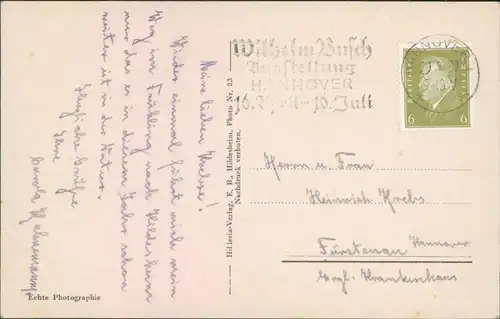 Wilhelm Busch
Ausstellung
HANNOVER
16. April - 16. Juli
HANNOVER
6 6
Meine lieben Krebse!
Wieder einmal führt mich mein
Weg im Frühling nach Hildesheim
nur das es in diesem Jahr schon
weiter ist in der Natur.
Herzliche Grüße
Ihre
Hillesia-Verlag, E. B., Hildesheim, Photo Nr. 23
Nachdruck verboten.
Herrn u. Frau
Heinrich Krebs
Fürstenau Hannover
Evgl. Krankenhaus
Echte Photographie